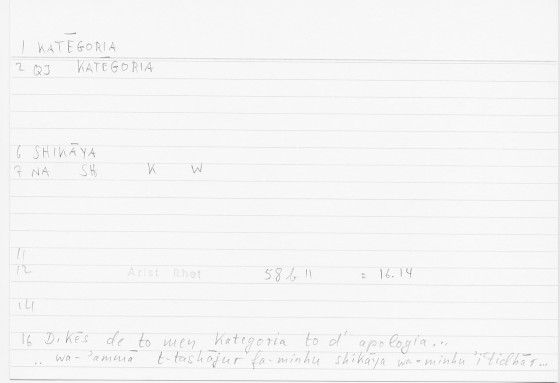 1 KATĒGORIA
2 QJ KATĒGORIA
6 SHIKĀYA
7 NA SH K W
11
12 Arist Rhet 58 b 11 = 16.14
14
16 Dikēs de to men Katēgoria to d' apologia...
.. wa-'ammā t-tashājur fa-minhu shikāya wa-minhu i'tidhār...